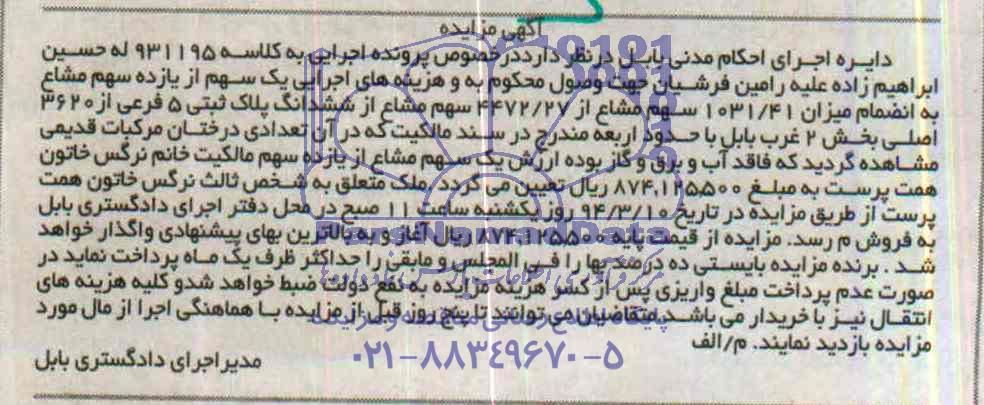 آگهی مزایده
دایره اجرای احکام مدنی بابل در نظر دارد در خصوص پرونده اجرایی به کلاسه ۹۳۱۱۹۵ له حسین
ابراهیم زاده علیه رامین فرشیان جهت وصول محکوم به و هزینه های اجرایی یک سهم از یازده سهم مشاع
به انضمام میزان ۱۰۳۱/۴۱ سهم مشاع از ۴۴۷۲/۲۷ سهم مشاع از ششدانگ پلاک ثبتی ۵ فرعی از ۳۶۲۰
اصلی بخش ۲ غرب بابل با حدود اربعه مندرج در سند مالکیت که در آن تعدادی درختان مرکبات قدیمی
مشاهده گردید که فاقد آب و برق و گاز بوده ارزش یک سهم مشاع از یازده سهم مالکیت خانم نرگس خاتون
همت پرست به مبلغ ۸۷۴,۱۲۵۵۰۰ ریال تعیین می گردد. ملک متعلق به شخص ثالث نرگس خاتون همت
پرست از طریق مزایده در تاریخ ۹۴/۳/۱۰ روز یکشنبه ساعت ۱۱ صبح در محل دفتر اجرای دادگستری بابل
به فروش م رسد. مزایده از قیمت پایه ۸۷۴,۱۲۵۵۰۰ ریال آغاز و به بالاترین بهای پیشنهادی واگذار خواهد
شد. برنده مزایده بایستی ده درصد بها را فی المجلس و مابقی را حداکثر ظرف یک ماه پرداخت نماید در
صورت عدم پرداخت مبلغ واریزی پس از کسر هزینه مزایده به نفع دولت ضبط خواهد شدو کلیه هزینه های
انتقال نیز با خریدار می باشد. متقاضیان می توانند تا پنج روز قبل از مزایده با هماهنگی اجرا از مال مورد
مزایده بازدید نمایند. م/الف
مدیر اجرای دادگستری بابل
۰۲۱-۸۸۳۴۹۶۷۰-۵
ParsNamadData